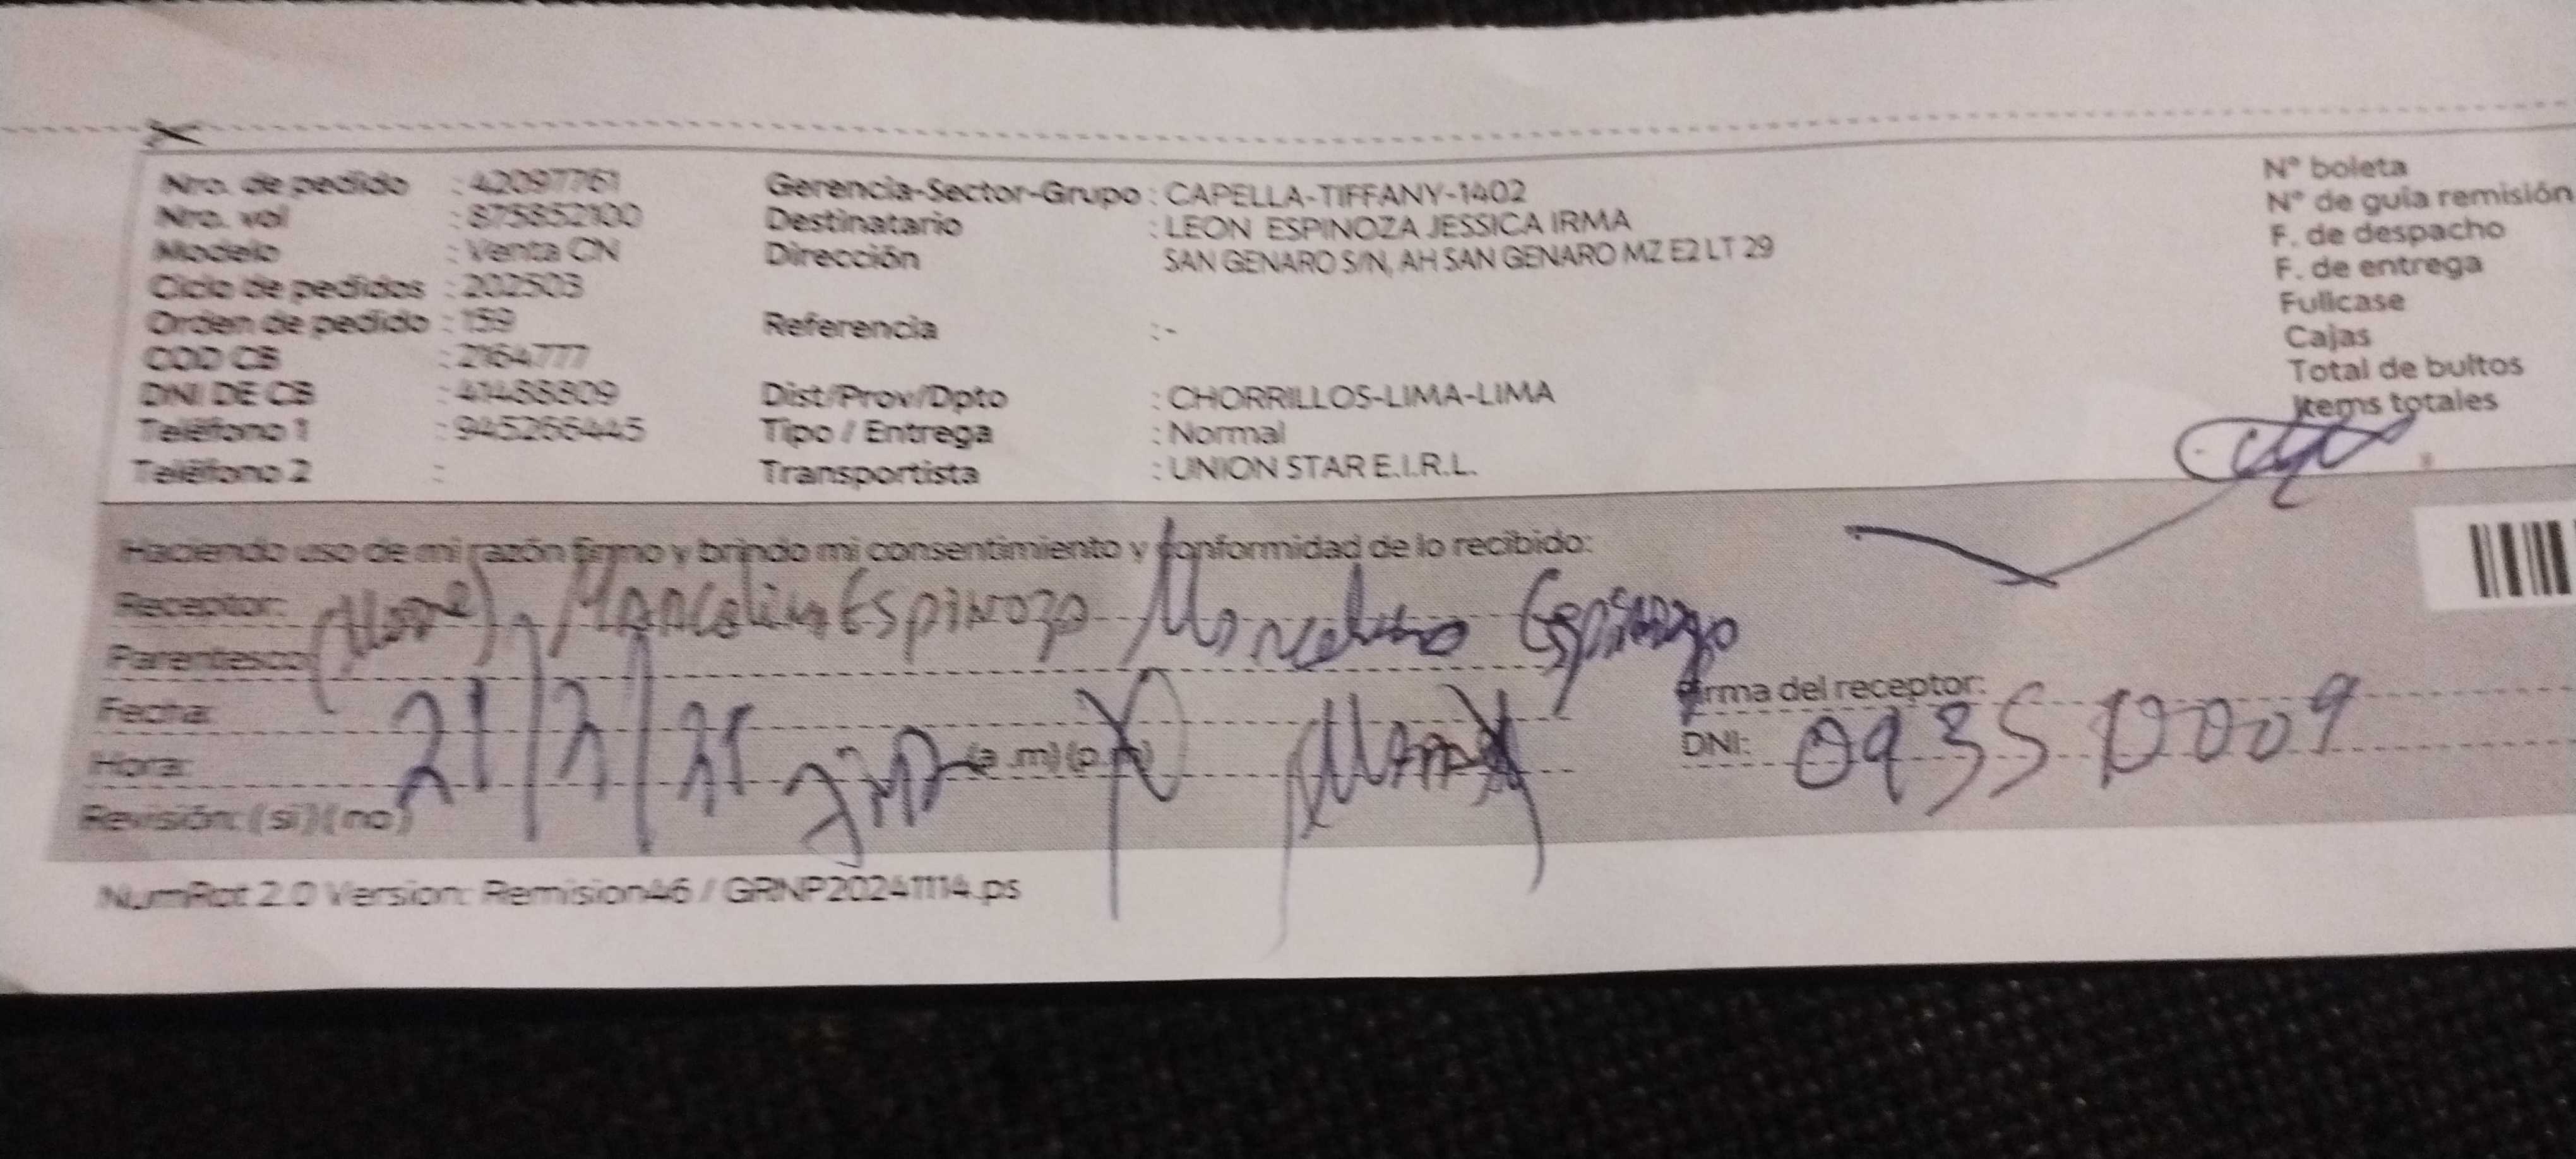 Nro. de pedido : 42097761
Nro. vol : 875852100
Modelo : Venta CN
Ciclo de pedidos : 202503
Orden de pedido : 159
COD CB : 2164777
DNI DE CB : 41488809
Teléfono 1 : 945266445
Teléfono 2 :
Gerencia-Sector-Grupo : CAPELLA-TIFFANY-1402
Destinatario : LEON ESPINOZA JESSICA IRMA
Dirección SAN GENARO S/N, AH SAN GENARO MZ E2 LT 29
Referencia :-
Dist/Prov/Dpto : CHORRILLOS-LIMA-LIMA
Tipo / Entrega : Normal
Transportista : UNION STAR E.I.R.L.
N° boleta
N° de guía remisión
F. de despacho
F. de entrega
Fullcase
Cajas
Total de bultos
Items totales
Haciendo uso de mi razón firmo y brindo mi consentimiento y conformidad de lo recibido:
Receptor: Espinoza Espinozo
Parentesco
Fecha:
Hora: (a .m) (p.m)
Revisión: (si) (no)
Firma del receptor:
DNI:
NumRot 2.0 Version: Remision46 / GRNP20241114.ps